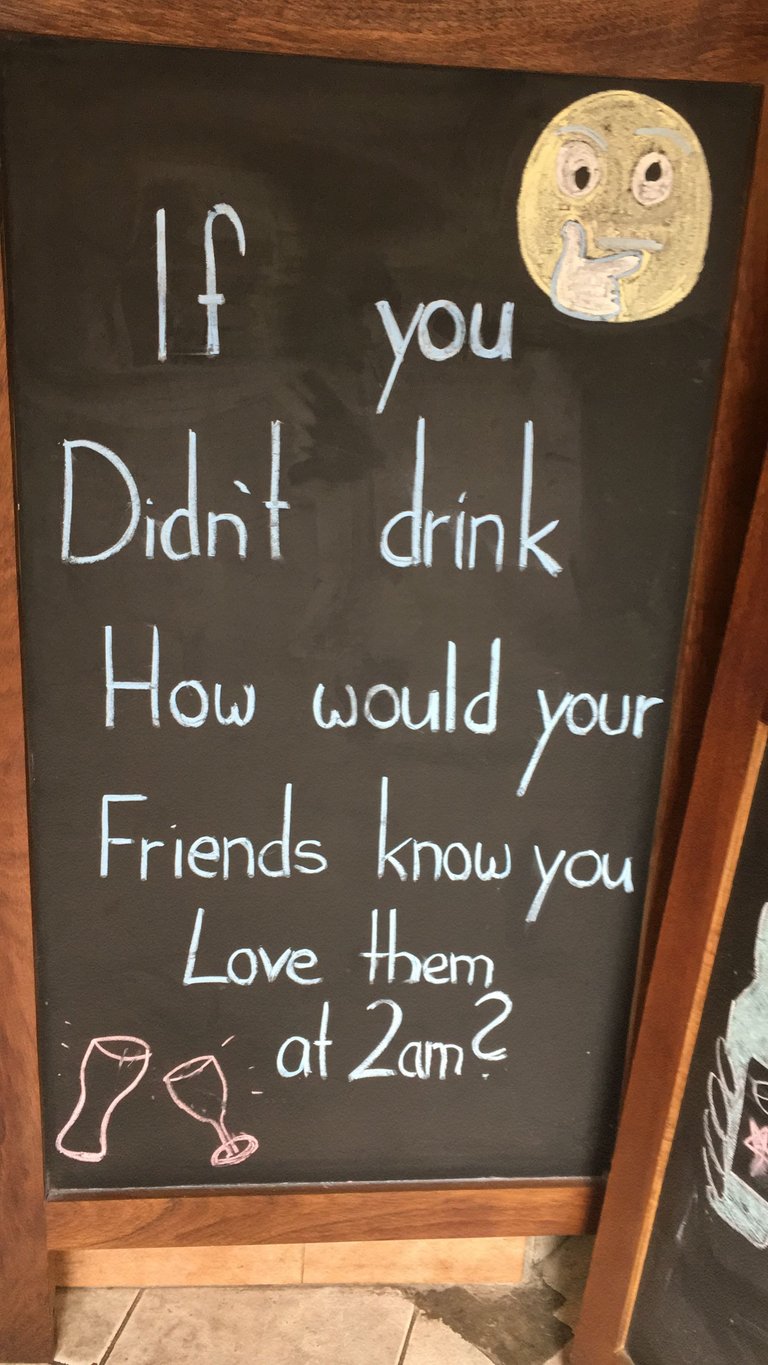 If you
Didn't drink
How would your
Friends know you
Love them
at 2am?